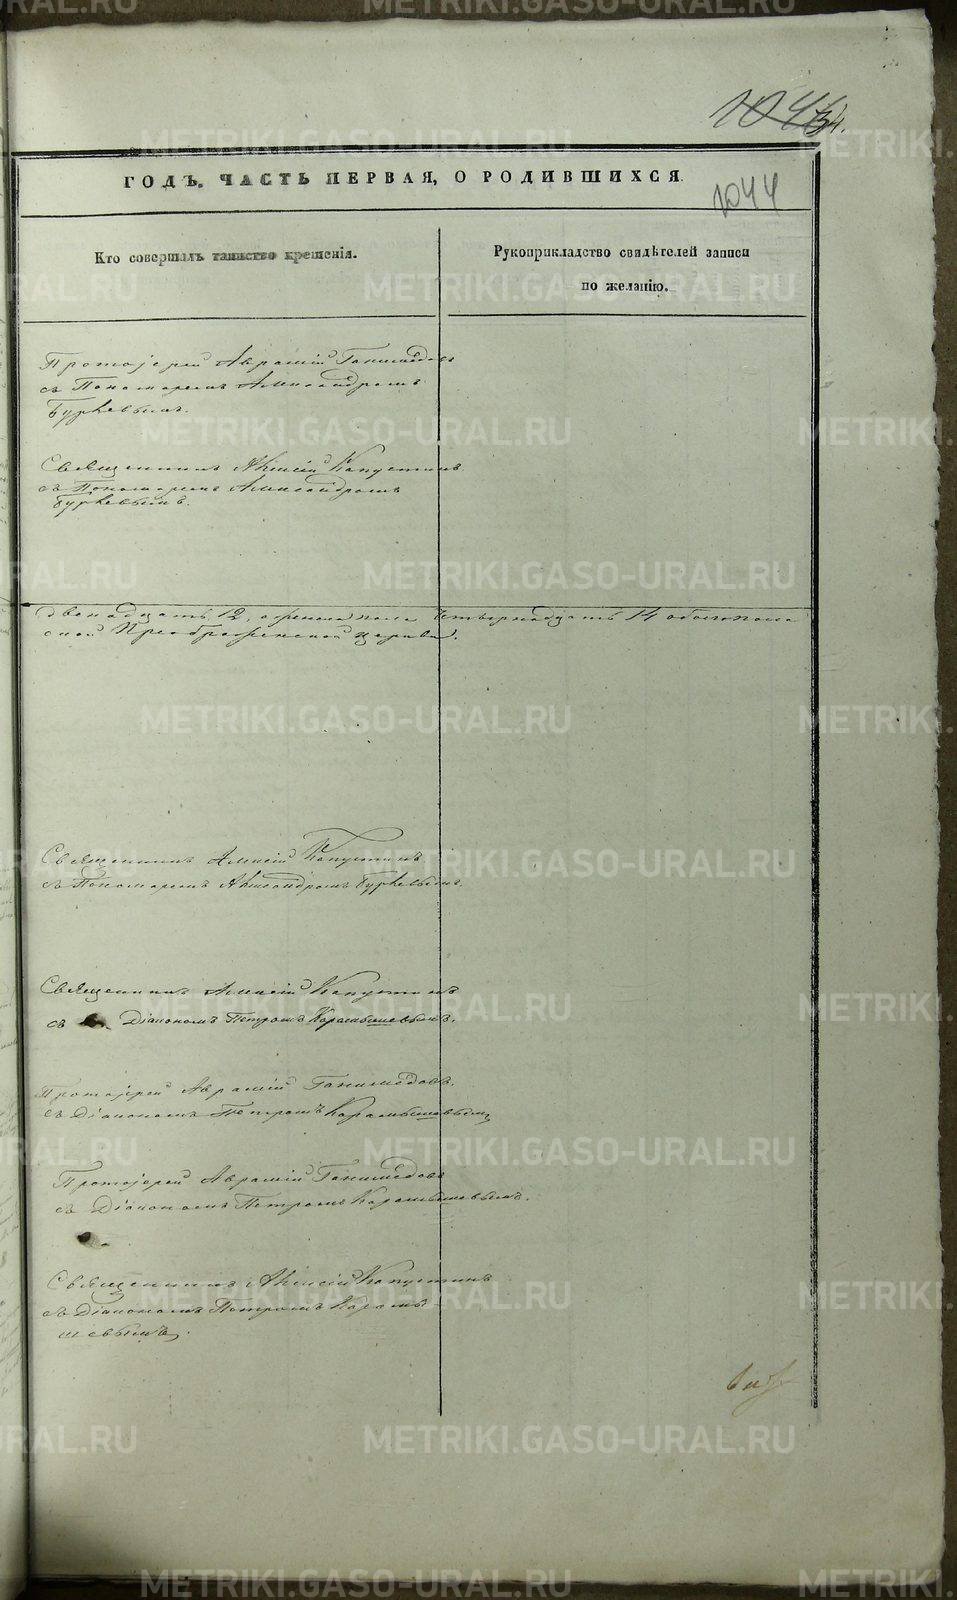 1044
ГОДЪ. ЧАСТЬ ПЕРВАЯ, О РОДИВШИХСЯ.
Кто совершалъ таинство крещенія.
Рукоприкладство свидѣтелей записи
по желанію.
Протоіерей Аврамій Ганимедовъ
съ Пономаремъ Александромъ
Священникъ Алексій Капустинъ
съ Пономаремъ Александромъ
двенадцать 12, а женска пола четырнадцать 14 обоего пола
Преображенской церкви.
Священникъ Алексій Капустинъ
съ Пономаремъ Александромъ
Священникъ Алексій Капустинъ
съ Діакономъ Петромъ Карамышевымъ.
Протоіерей Аврамій Ганимедовъ
съ Діакономъ Петромъ Карамышевымъ
Протоіерей Аврамій Ганимедовъ
съ Діакономъ Петромъ Карамышевымъ.
Священникъ Алексій Капустинъ
съ Діакономъ Петромъ Карамы-
шевымъ.
METRIKI.GASO-URAL.RU